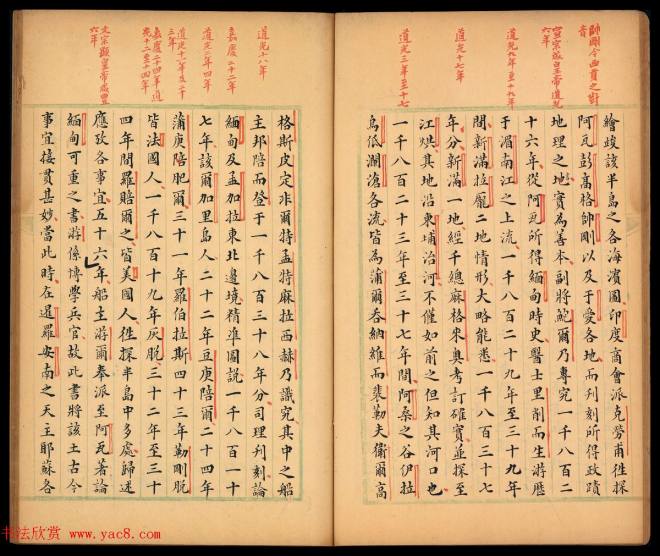 帥剛今西貢之對音
宣宗成皇帝道光六年
道光九年至十九年
道光十七年
道光三年至十七
繪竣該半島之各海濱圖印度商會派克勞甫徃探
阿瓦彭高格帥剛以及于愛各地而刊刻所得政蹟
地理之地實為善本副將鮑爾乃專究一千八百二
十六年從阿瓦所得緬甸時史醫士里削而生游歷
于湄南江之上流一千八百二十九年至三十九年
間新滿拉龎二地情形大略能悉一千八百三十七
年分新滿一地經千總麻格米奧考訂確實並探至
江烘其地沿東埔治河不僅如前之但知其河口也
一千八百二十三年至三十七年間阿桑之谷伊拉
烏低瀾滄各流皆為蒲爾吞納維而裴勒夫衞爾高
道光十八年
嘉慶二十二年
道光二年四年
道光十一年二十三年
嘉慶二十四年道光十二至十四年
文宗顯皇帝咸豐六年
格斯皮定非爾特孟特麻拉西赫乃識究其中之船
主邦陪而登于一千八百三十八年分司理刊刻論
緬甸及孟加拉東北邊境精准圖説一千八百一十
七年該爾加里島人二十二年亘庚陪爾二十四年
蒲庚陪肥爾三十一年羅伯拉斯四十三年勒剛脱
皆法國人一千八百十九年灰脱三十二年至三十
四年間羅賠爾之皆美國人徃探半島中多處歸述
應致各事宜五十六年船主游爾奉派至阿瓦著論
緬甸可重之書游係博學兵官故此書將該土古今
事宜接貫甚妙當此時在暹羅安南之天主耶蘇各
书法欣赏 www.yac8.com